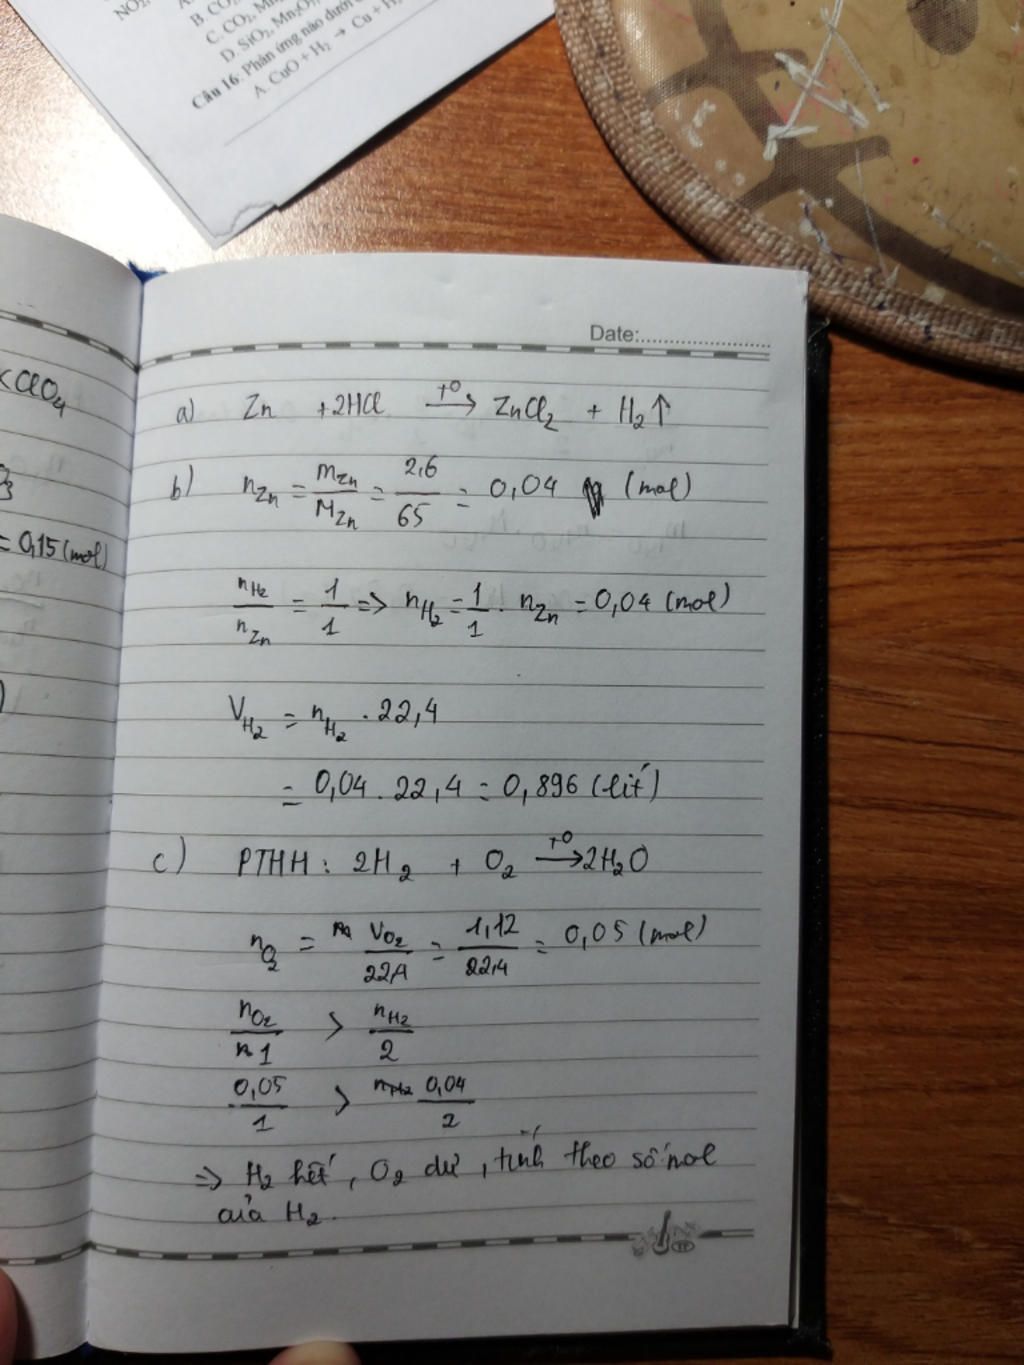 NO₂
B. CO₂
C. CO₂, Mn
D. SiO₂, Mn₂O₇
Câu 16: Phản ứng nào dưới
A. CuO + H₂ → Cu + H₂
Date:
KClO₄
= 0,15 (mol)
a) Zn + 2HCl →(t⁰) ZnCl₂ + H₂↑
b) n_Zn = m_Zn/M_Zn = 2,6/65 = 0,04 (mol)
n_H₂/n_Zn = 1/1 => n_H₂ = 1/1 . n_Zn = 0,04 (mol)
V_H₂ = n_H₂ . 22,4
= 0,04 . 22,4 = 0,896 (lít)
c) PTHH: 2H₂ + O₂ →(t⁰) 2H₂O
n_O₂ = V_O₂/22,4 = 1,12/22,4 = 0,05 (mol)
n_O₂/1 > n_H₂/2
0,05/1 > 0,04/2
=> H₂ hết, O₂ dư, tính theo số mol
của H₂.